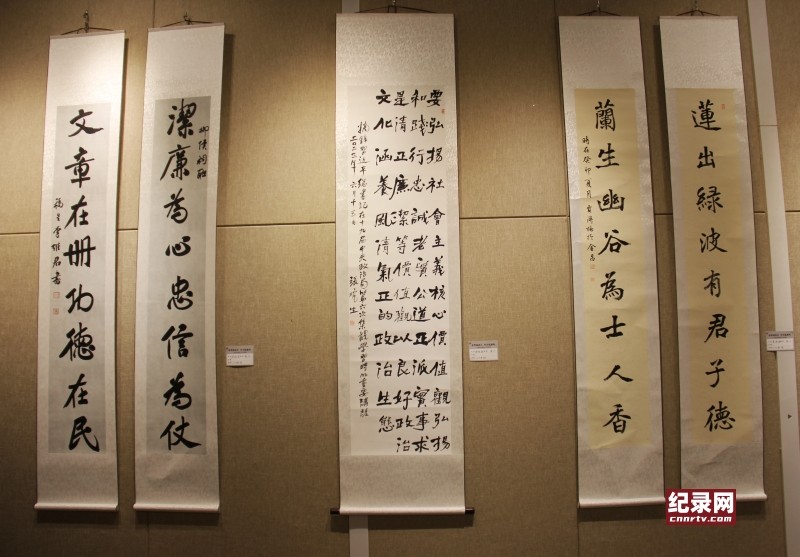 蓮出綠波有君子德
蘭生幽谷為士人香
時在癸卯夏月
要弘揚社會主義核心價值觀弘揚
和踐行忠誠老實公道正派實事求
是清正廉潔等價值觀以良好政治
文化涵養風清氣正的政治生態
潔廉為心忠信為仗
柳侯祠聯
文章在冊功德在民
纪录网
cnnrtv.com